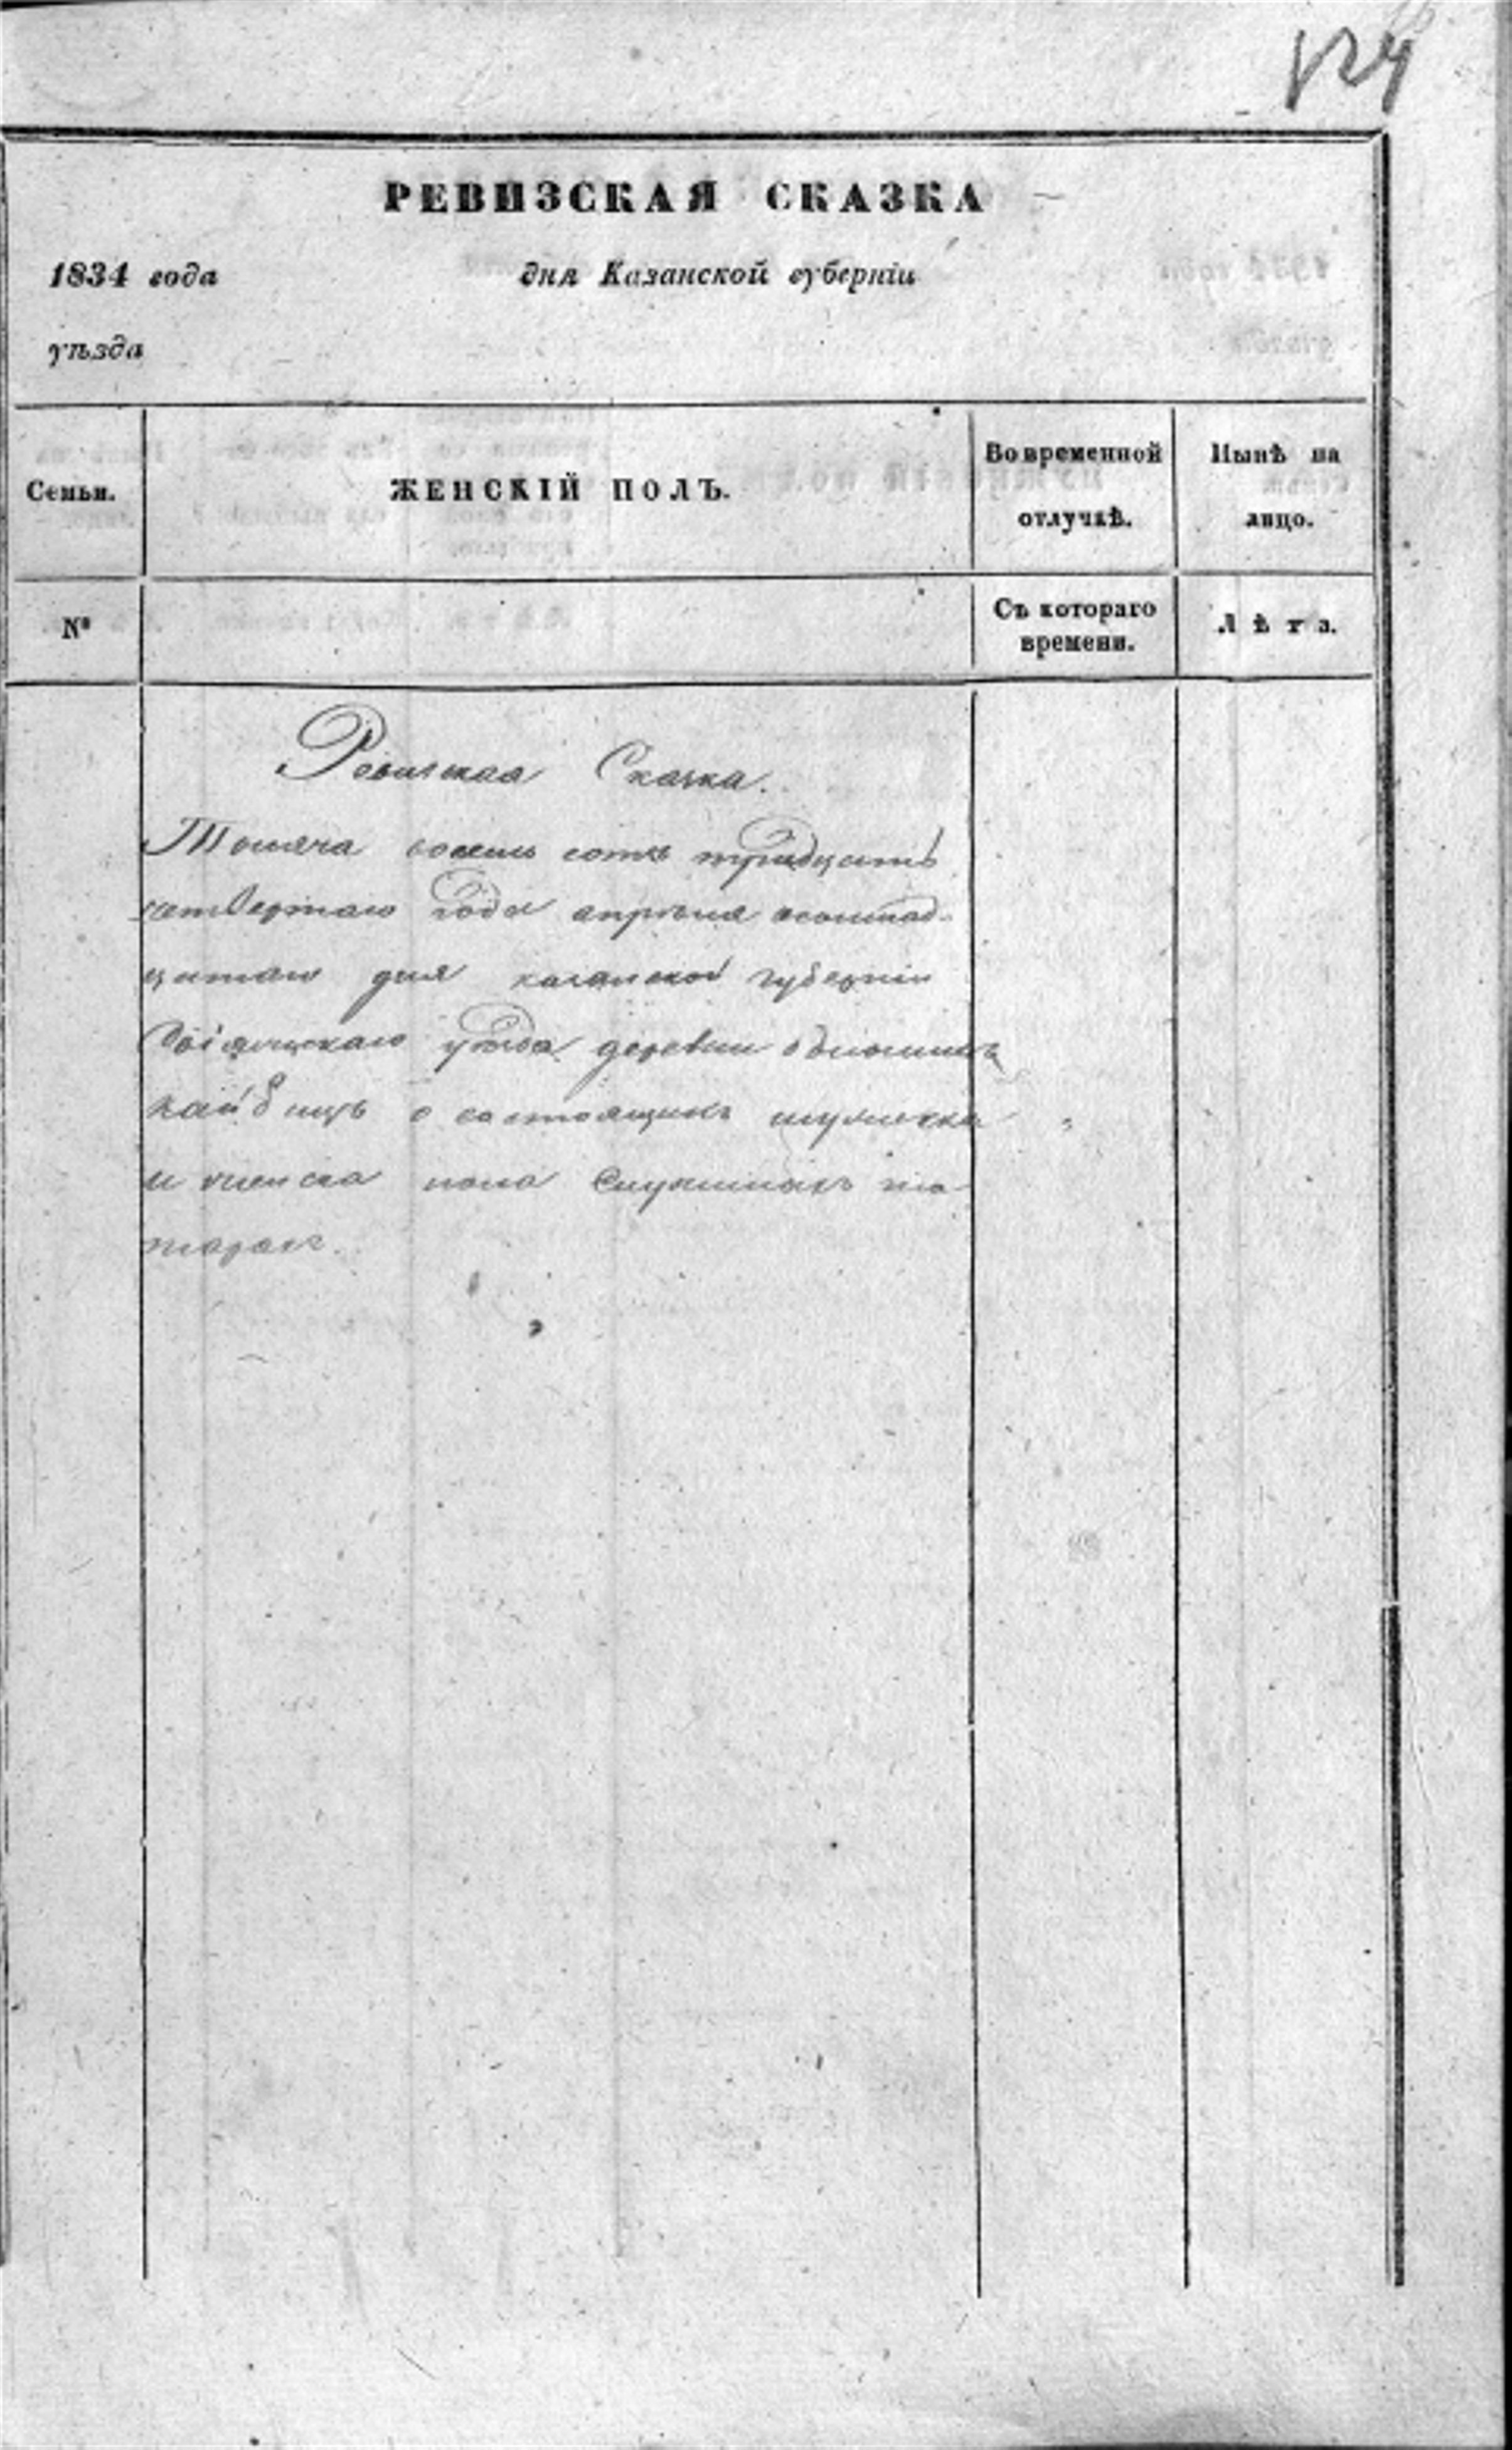 124
РЕВИЗСКАЯ СКАЗКА
1834 года дня Казанской губерніи
уѣзда
Семьи. ЖЕНСКІЙ ПОЛЪ. Во временной отлучкѣ. Нынѣ на лицо.
№ Съ котораго времени. Лѣта.
Ревизская Сказка.
Тысяча восемь сотъ тридцать
четвертаго года апрѣля
цатаго дня казанской губерніи
Свіяжскаго уѣзда деревни
кайбицъ о состоящихъ мужеска
и женска пола Служилыхъ та
таръ.